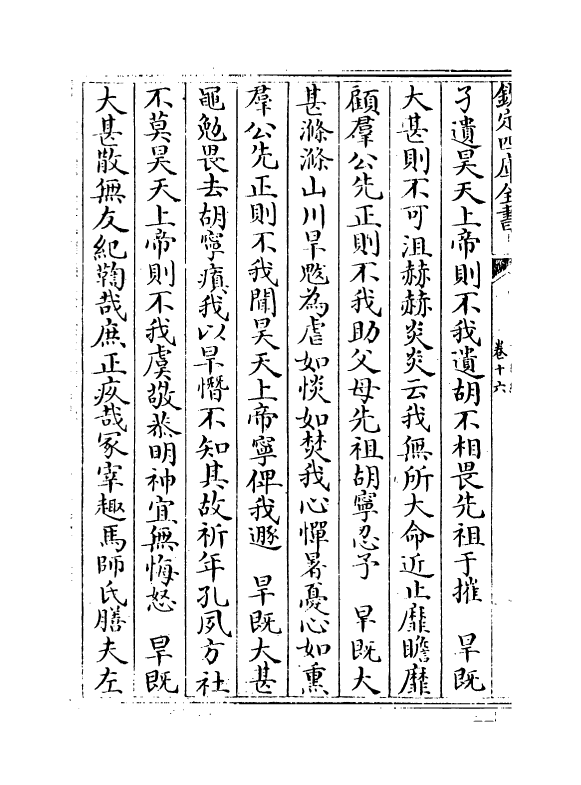 欽定四庫全書
卷十六
孑遺昊天上帝則不我遺胡不相畏先祖于摧　旱既
大甚則不可沮赫赫炎炎云我無所大命近止靡瞻靡
顧羣公先正則不我助父母先祖胡寧忍予　旱既大
甚滌滌山川旱魃為虐如惔如焚我心憚暑憂心如熏
羣公先正則不我聞昊天上帝寧俾我遯　旱既大甚
黽勉畏去胡寧瘨我以旱憯不知其故祈年孔夙方社
不莫昊天上帝則不我虞敬恭明神宜無悔怒　旱既
大甚散無友紀鞫哉庶正疚哉冢宰趣馬師氏膳夫左